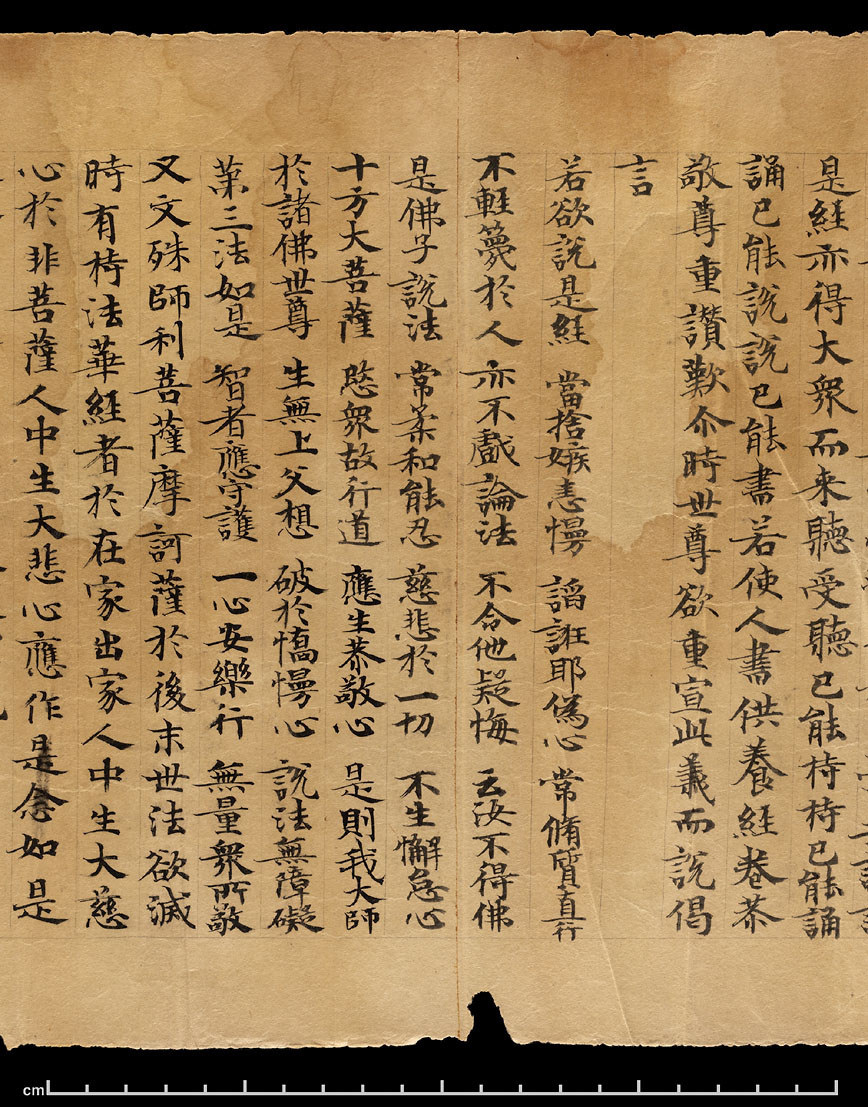 是經亦得大衆而来聽受聽已能持持已能誦
誦已能說說已能書若使人書供養經卷恭
敬尊重讚歎尒時世尊欲重宣此義而說偈
言
若欲說是經 當捨嫉恚慢 謟誑耶偽心 常脩質直行
不輕蔑於人 亦不戲論法 不令他疑悔 云汝不得佛
是佛子說法 常柔和能忍 慈悲於一切 不生懈怠心
十方大菩薩 愍衆故行道 應生恭敬心 是則我大師
於諸佛世尊 生無上父想 破於憍慢心 說法無障礙
第三法如是 智者應守護 一心安樂行 無量衆所敬
又文殊師利菩薩摩訶薩於後末世法欲滅
時有持法華經者於在家出家人中生大慈
心於非菩薩人中生大悲心應作是念如是